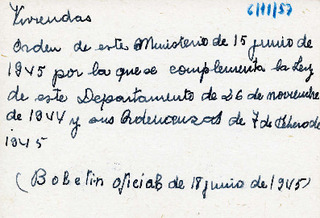 Viviendas 6/11/57
Orden de este Ministerio de 15 junio de
1945 por la que se complementa la Ley
de este Departamento de 26 de noviembre
de 1944 y sus Ordenanzas de 7 de febrero de
1945
(Boletin oficial de 18 junio de 1945)